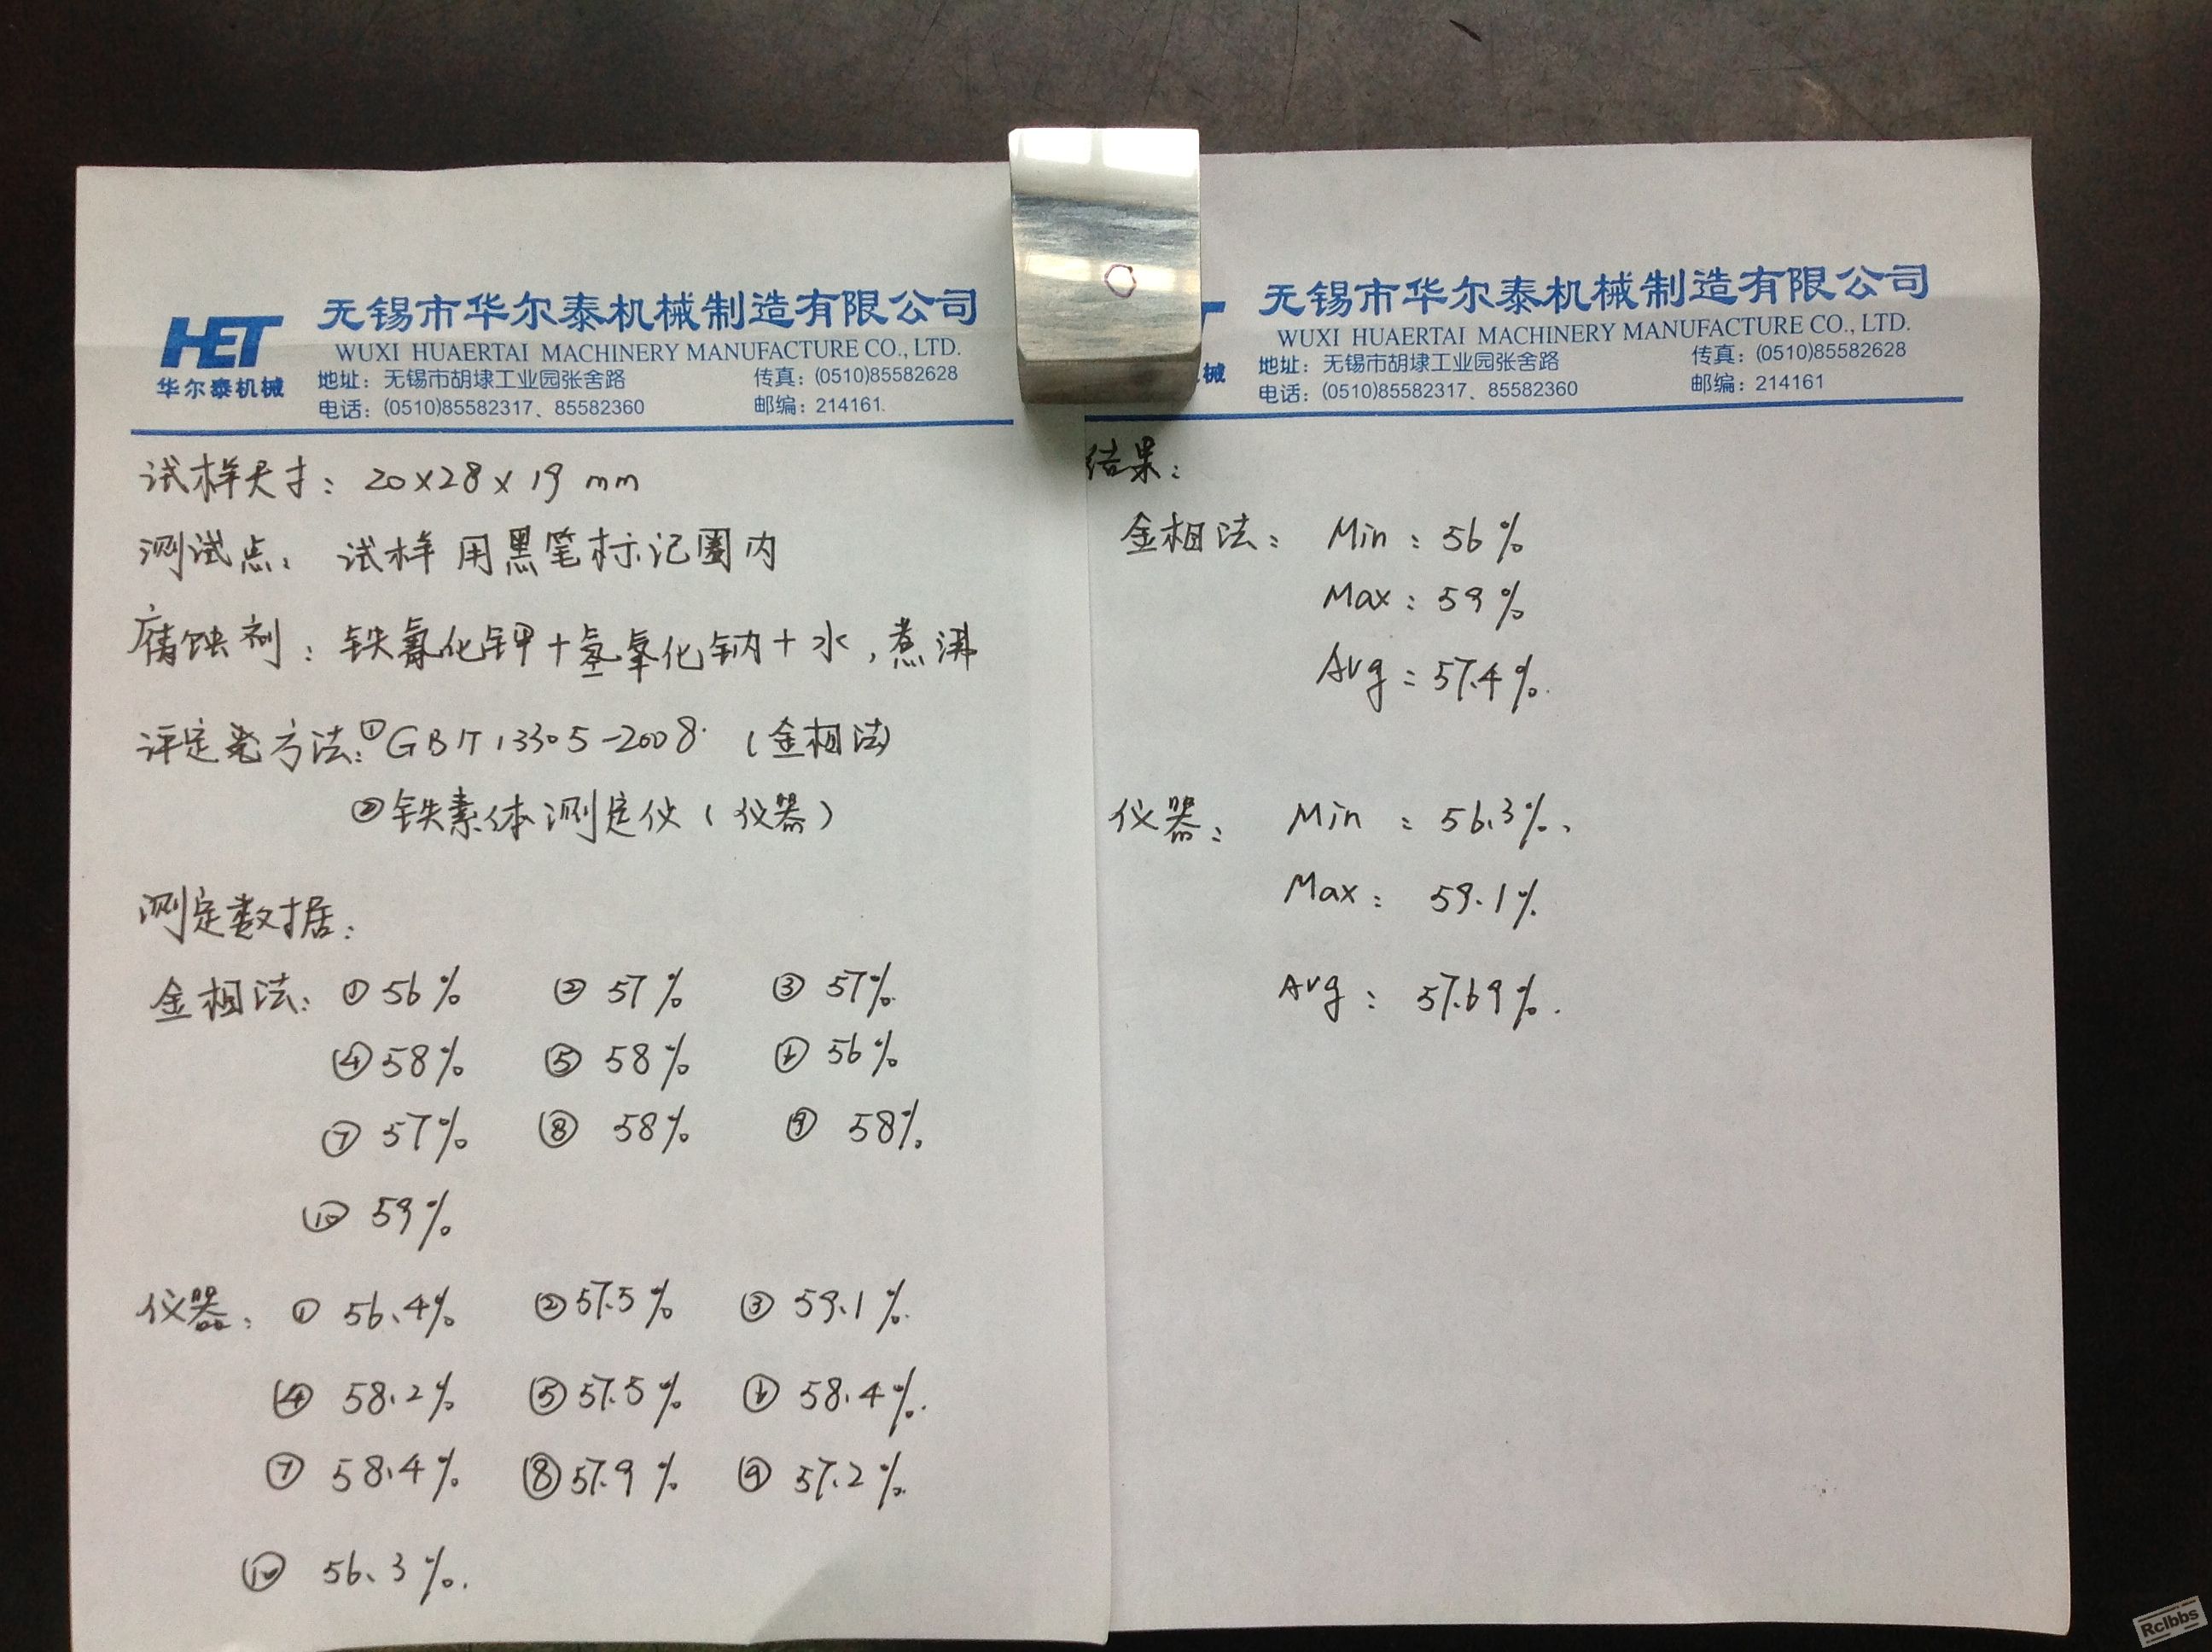 HET
华尔泰机械
无锡市华尔泰机械制造有限公司
WUXI HUAERTAI MACHINERY MANUFACTURE CO., LTD.
地址：无锡市胡埭工业园张舍路 传真：(0510)85582628
电话：(0510)85582317、85582360 邮编：214161
试样尺寸：20×28×19 mm
测试点：试样用黑笔标记圈内
腐蚀剂：铁氰化钾+氢氧化钠+水，煮沸
评定方法：①GB/T 13305-2008 (金相法)
②铁素体测定仪（仪器）
测定数据：
金相法：①56% ②57% ③57%
④58% ⑤58% ⑥56%
⑦57% ⑧58% ⑨58%
⑩59%
仪器：①56.4% ②57.5% ③59.1%
④58.2% ⑤57.5% ⑥58.4%
⑦58.4% ⑧57.9% ⑨57.2%
⑩56.3%
械
无锡市华尔泰机械制造有限公司
WUXI HUAERTAI MACHINERY MANUFACTURE CO., LTD.
地址：无锡市胡埭工业园张舍路 传真：(0510)85582628
电话：(0510)85582317、85582360 邮编：214161
结果：
金相法：Min：56%
Max：59%
Avg：57.4%
仪器：Min：56.3%
Max：59.1%
Avg：57.69%
Rclbbs